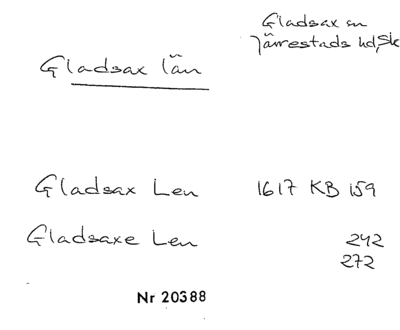 Gladsax sn
Järrestads hd, Sk
Gladsax län
Gladsax Len 1617 KB 159
Gladsaxe Len 242
272
Nr 20388